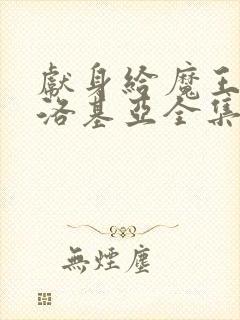 獻身給魔王
洛基亞全集
無煙塵